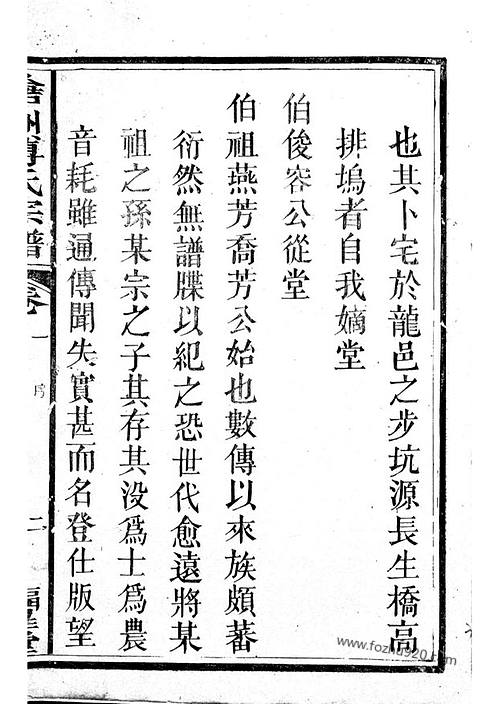 也其卜宅於龍邑之步坑源長生橋高
排塢者自我嫡堂
伯俊容公從堂
伯祖燕芳喬芳公始也數傳以來族頗蕃
衍然無譜牒以紀之恐世代愈遠將某
祖之孫某宗之子其存其没爲士爲農
音耗雖通傳聞失實甚而名登仕版望
氏宗譜
卷一
二
www.fozhu920.com